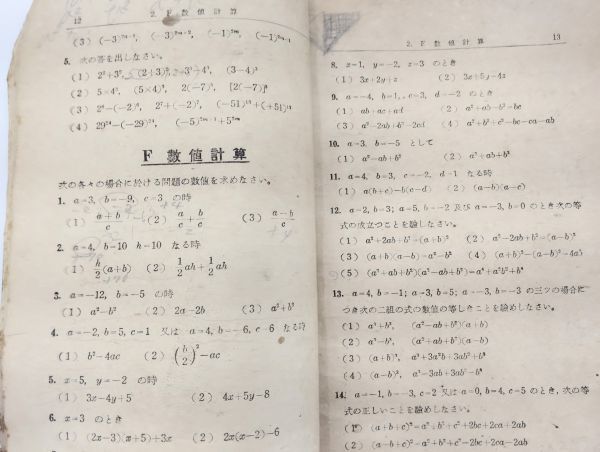 12
2. F 数値計算
(3) (-3)²ᵐ, (-3)²ᵐ⁺², (-1)²ᵐ, (-1)²ᵐ⁺¹
5. 次の答を出しなさい。
(1) 2²+3², (2+3)², 3²+4², (3-4)²
(2) 5×4³, (5×4)³, 2(-7)³, [2(-7)]³
(3) 2⁶-(-2)⁶, 2⁷+(-2)⁷,
(4) 29²⁴-(-29)²⁴,
F 数値計算
次の各々の場合に於ける問題の数値を求めなさい。
1. a=3, b=-9, c=3 の時
(1) (a+b)/c (2) a/c + b/c (3) (a-b)/c
2. a=4, b=10 h=10 なる時
(1) h/2(a+b) (2) 1/2ah+1/2ah
3. a=-12, b=-5 の時
(1) a²-b² (2) 2a-2b (3) a²+b²
4. a=-2, b=5, c=1 又は a=4, b=-6, c=6 なる時
(1) b²-4ac (2) (b/2)²-ac
5. x=5, y=-2 の時
(1) 3x-4y+5 (2) 4x+5y-8
6. x=3 のとき
(1) (2x-3)(x+5)+3x (2) 2x(x-2)-6
2. F 数値計算
13
8. x=1, y=-2, z=3 のとき
(1) 3x+2y+z (2) 3x+5y-4z
9. a=-4, b=1, c=3, d=-2 のとき
(1) ab+ac+ad (2) a²+ab-b²-bc
(3) a²-2ab+b²-2cd (4) a²+b²+c²-bc-ca-ab
10. a=3, b=-5 として
(1) a²-ab+b² (2) a²+ab+b²
11. a=4, b=3, c=-2, d=1 なる時
(1) a(b+c)-b(c-d) (2) (a-b)(a-c)
12. a=2, b=3; a=5, b=-2 及び a=-3, b=0 のとき次の等
式の成立つことを驗しなさい。
(1) a²+2ab+b²=(a+b)² (2) a²-2ab+b²=(a-b)²
(3) (a+b)(a-b)=a²-b² (4) (a+b)²-(a-b)²=4ab
(5) (a²+ab+b²)(a²-ab+b²)=a⁴+a²b²+b⁴
13. a=4, b=-1; a=-3, b=5; a=-3, b=-3 の三ツの場合に
つき次の二組の式の数値の等しきことを驗めしなさい。
(1) a³+b³, (a²-ab+b²)(a+b)
(2) a³-b³, (a²+ab+b²)(a-b)
(3) (a+b)³, a³+3a²b+3ab²+b³
(4) (a-b)³, a³-3ab+3ab²-b³
14. a=-1, b=-3, c=2 又は a=0, b=4, c=5 のとき, 次の等
式の正しいことを驗めしなさい。
(1) (a+b+c)²=a²+b²+c²+2bc+2ca+2ab
(2) (a-b+c)²=a²+b²+c²-2bc+2ca-2ab